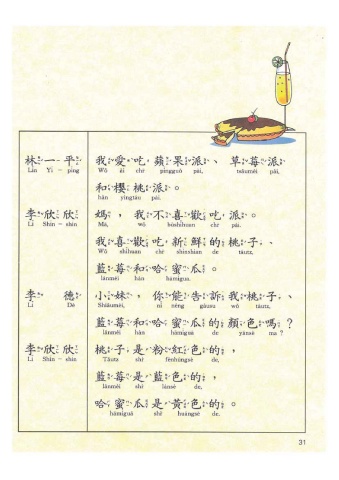 林一平 我愛吃蘋果派、草莓派
Lín Yi - píng Wǒ ài chr píngguǒ pài, tsǎuméi pài,
和櫻桃派。
hàn yīngtáu pài.
李欣欣 媽，我不喜歡吃派。
Lǐ Shīn - shīn Mā, wǒ bùshǐhuān chr pài.
我喜歡吃新鮮的桃子、
Wǒ shǐhuān chr shīnshiān de táutz,
藍莓和哈蜜瓜。
lánméi hàn hāmìguā.
李德 小妹，你能告訴我桃子、
Lǐ Dé Shiǎumèi, nǐ néng gàusu wǒ táutz,
藍莓和哈蜜瓜的顏色嗎？
lánméi hàn hāmìguā de yánsè ma ?
李欣欣 桃子是粉紅色的，
Lǐ Shīn - shīn Táutz shì fěnhúngsè de,
藍莓是藍色的，
lánméi shì lánsè de,
哈蜜瓜是黃色的。
hāmìguā shì huángsè de.
31